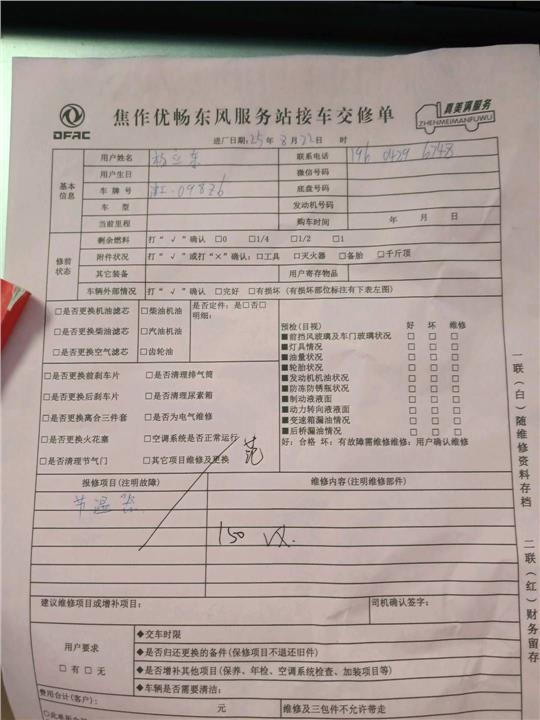 DFAC
焦作优畅东风服务站接车交修单
真美满服务
ZHENMEIMANFUWU
进厂日期:25年 8 月 22 日 时
基本信息
用户姓名 联系电话 196 0429 6748
用户生日 微信号码
车 牌 号 底盘号码
车 型 发动机号码
当前里程 购车时间 年 月 日
修前状态
剩余燃料 打“√”确认 □0 □1/4 □1/2 □1
附件状况 打“√”或打“×”确认:□工具 □灭火器 □备胎 □千斤顶
其它装备 用户寄存物品
车辆外部情况 打“√”确认 □完好 □有损坏(有损坏部位标注有下表左图)
□是否更换机油滤芯 □柴油机油
□是否更换柴油滤芯 □汽油机油
□是否更换空气滤芯 □齿轮油
是否定件:是□否□
明细:
□是否更换前刹车片 □是否清理排气筒
□是否更换后刹车片 □是否清理尿素箱
□是否更换离合三件套 □是否为电气维修
□是否更换火花塞 □空调系统是否正常运行
□是否清理节气门 □其它项目维修及更换
范
预检(目视) 好 坏 维修
■前挡风玻璃及车门玻璃状况 □ □ □
■灯具情况 □ □ □
■油量状况 □ □ □
■轮胎状况 □ □ □
■发动机机油状况 □ □ □
■防冻防锈瓶状况 □ □ □
■制动液液面 □ □ □
■动力转向液液面 □ □ □
■变速箱漏油情况 □ □ □
■后桥漏油情况 □ □ □
好:合格 坏:有故障需维修维修:用户确认维修
报修项目(注明故障) 维修内容(注明维修部件)
节温器
150
建议维修项目或增补项目: 司机确认签字:
用户要求
□有 □无
◆交车时限
◆是否归还更换的备件(保修项目不退还旧件)
◆是否增补其他项目(保养、年检、空调系统检查、加装项目等)
◆车辆是否需要清洁:
费用合计(客户): 元 维修及三包件不允许带走
一联(白)随维修资料存档
二联(红)财务留存